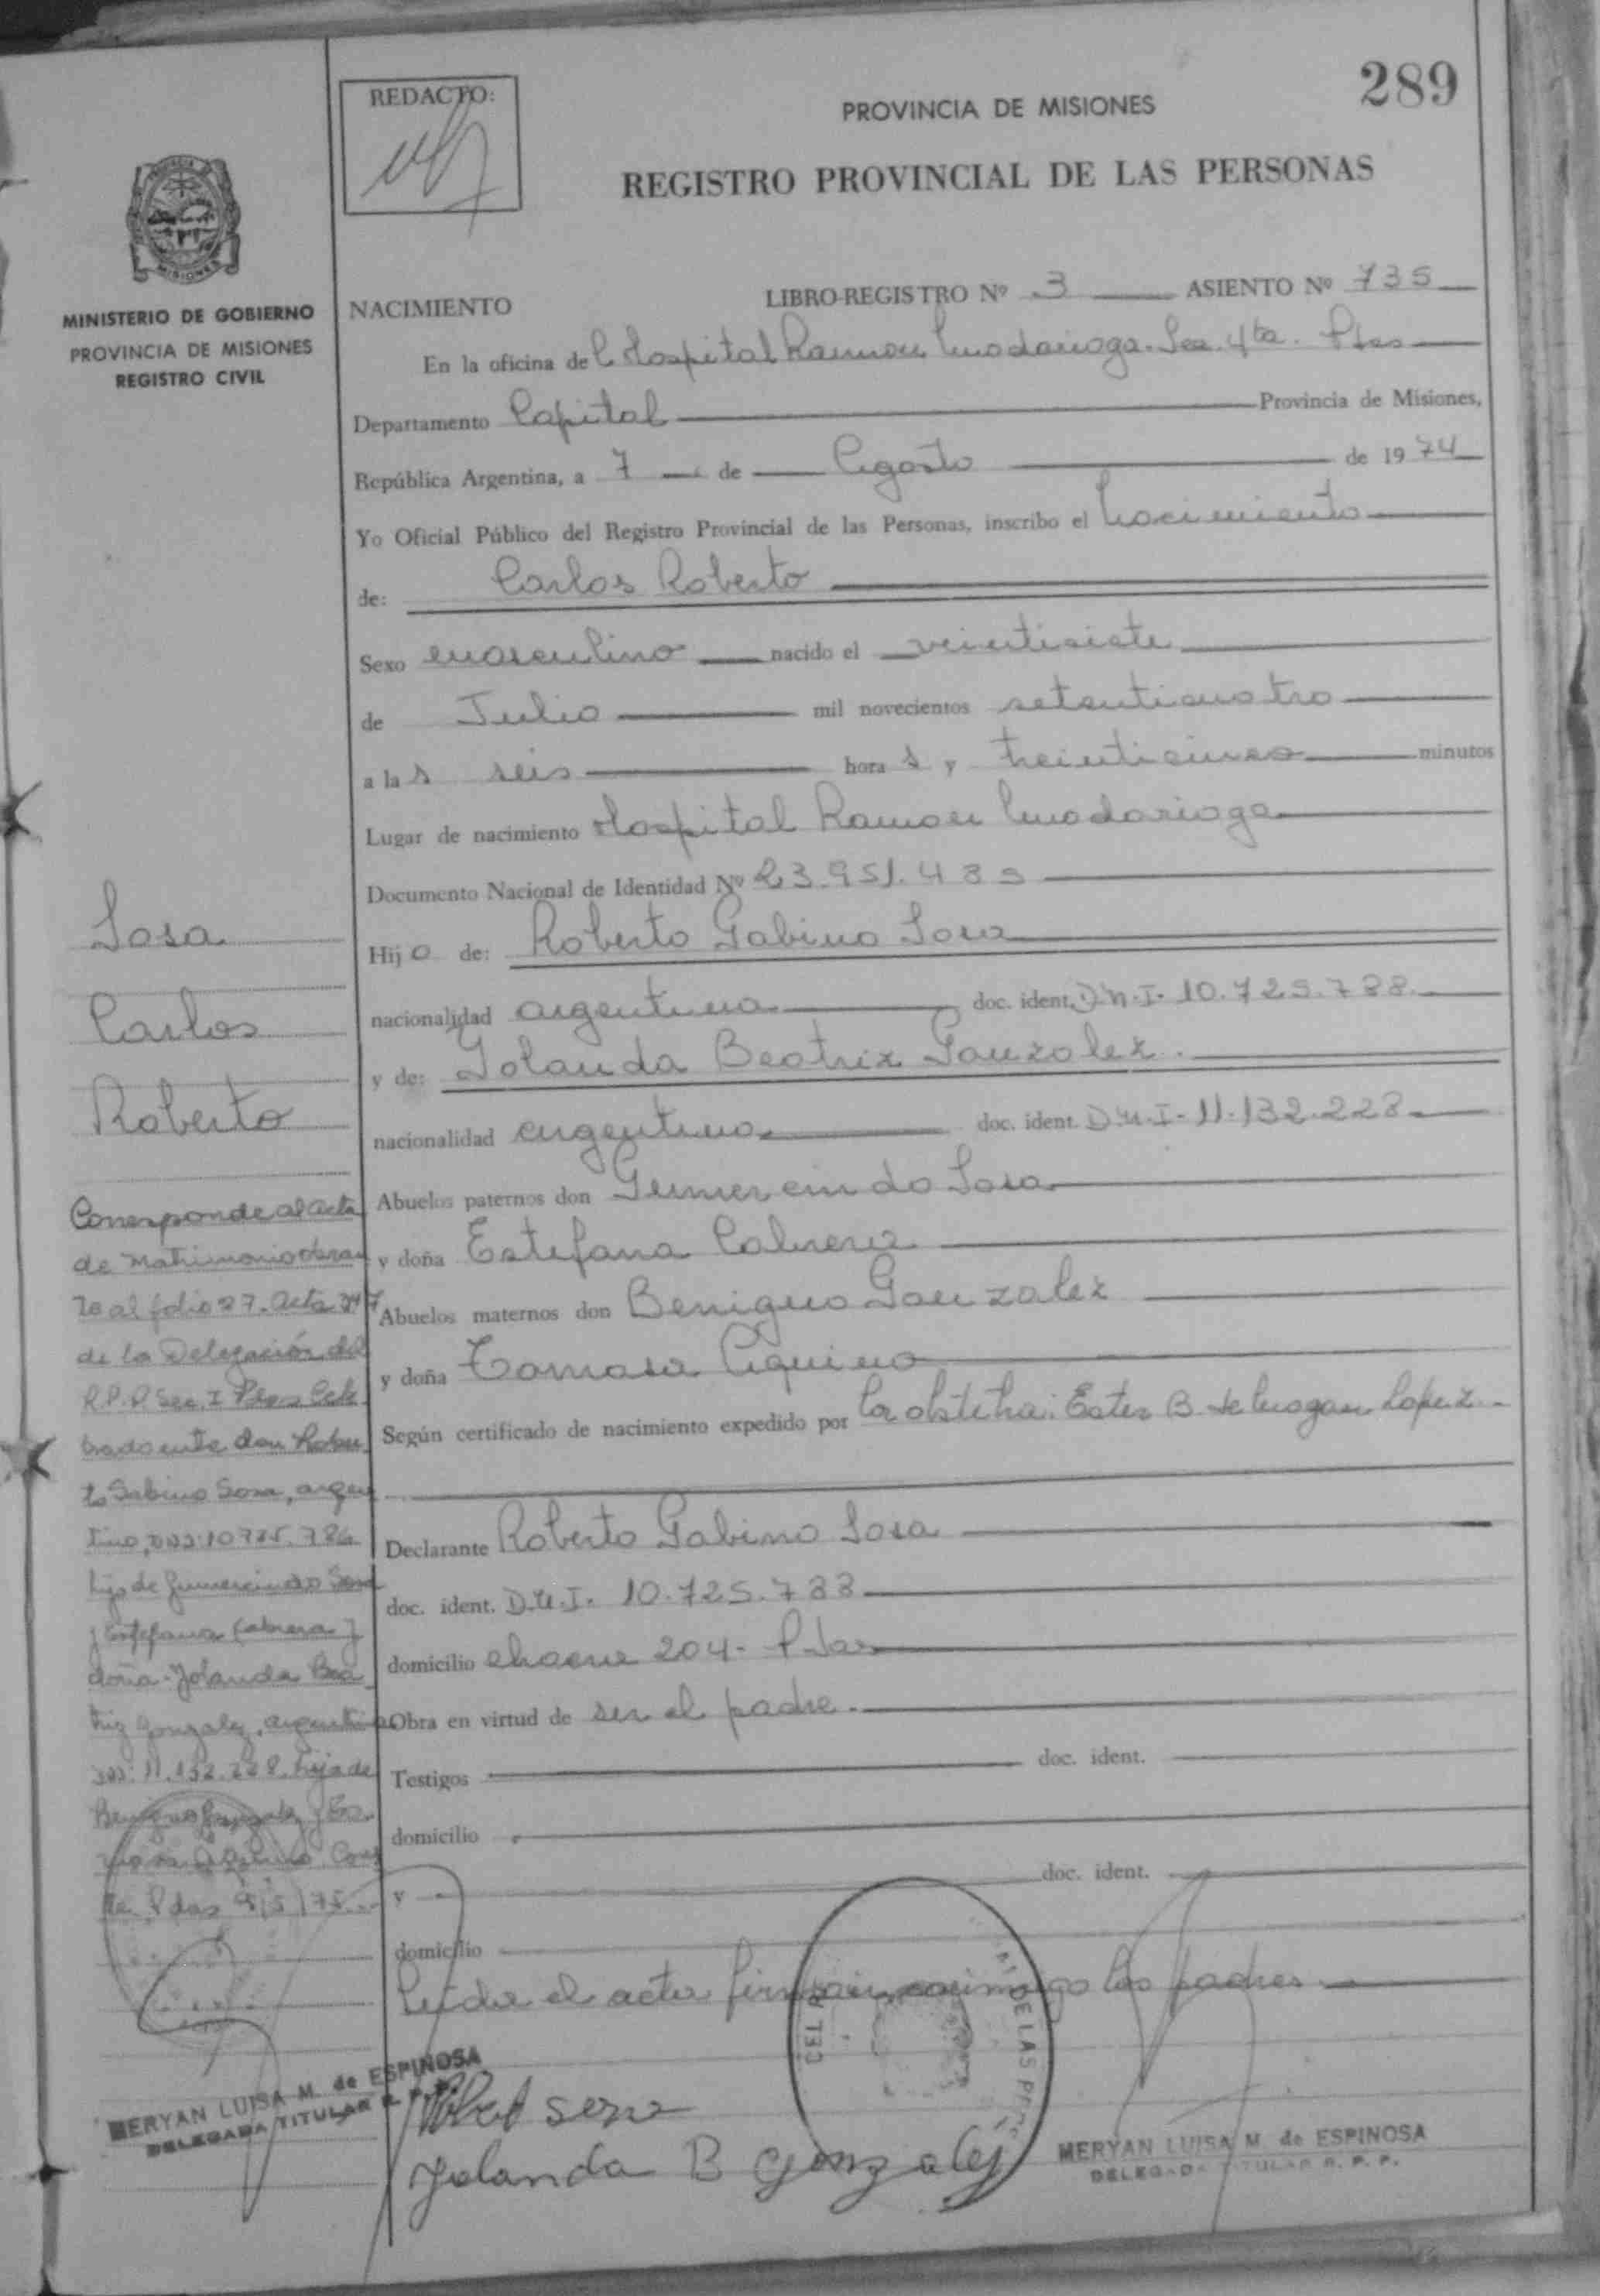 289
REDACTO:
PROVINCIA DE MISIONES
REGISTRO PROVINCIAL DE LAS PERSONAS
MISIONES
MINISTERIO DE GOBIERNO
PROVINCIA DE MISIONES
REGISTRO CIVIL
NACIMIENTO
LIBRO-REGISTRO Nº 3 ASIENTO Nº 735
En la oficina del Hospital Ramon Madariaga. Sec. 4ta. Pdas
Departamento Capital Provincia de Misiones,
República Argentina, a 7 de Agosto de 1974
Yo Oficial Público del Registro Provincial de las Personas, inscribo el nacimiento
de: Carlos Roberto
Sexo masculino nacido el veintisiete
de Julio mil novecientos setenticuatro
a las seis horas y treinticinco minutos
Lugar de nacimiento Hospital Ramon Madariaga
Documento Nacional de Identidad Nº 23.951.485
Hijo de: Roberto Gabino Sosa
nacionalidad argentina doc. ident. D.N.I. 10.725.788
y de: Yolanda Beatriz Gonzalez.
nacionalidad argentina doc. ident. D.N.I. 11.132.228
Abuelos paternos don Gumercindo Sosa
y doña Estefana Cabrera
Abuelos maternos don Benigno Gonzalez
y doña Tomasa Aquino
Según certificado de nacimiento expedido por la obstetra: Ester B. de Lopez
Declarante Roberto Gabino Sosa
doc. ident. D.N.I. 10.725.788
domicilio 204- Pdas
Obra en virtud de ser el padre.
Testigos doc. ident.
domicilio
y doc. ident.
domicilio
Leida el acta firman conmigo los padres
Sosa
Carlos
Roberto
Corresponde al acta
de Matrimonio obran
te al folio 27. Acta 347
de la Delegación del
R.P.P. Sec. I Pdas Cele
brado entre don Rober
to Gabino Sosa, argen
tino, DNI: 10725.786
hijo de Gumercindo Sosa
y Estefana Cabrera y
doña Yolanda Bea
triz Gonzalez, argentina
DNI: 11.132.228. hija de
Benigno Gonzalez y To
masa Aquino. Cons
te. Pdas 9/5/75.
MERYAN LUISA M. de ESPINOSA
DELEGADA TITULAR R. P. P.
Yolanda B Gonzalez
DE LAS PERS
MERYAN LUISA M. de ESPINOSA
DELEGADA TITULAR R. P. P.